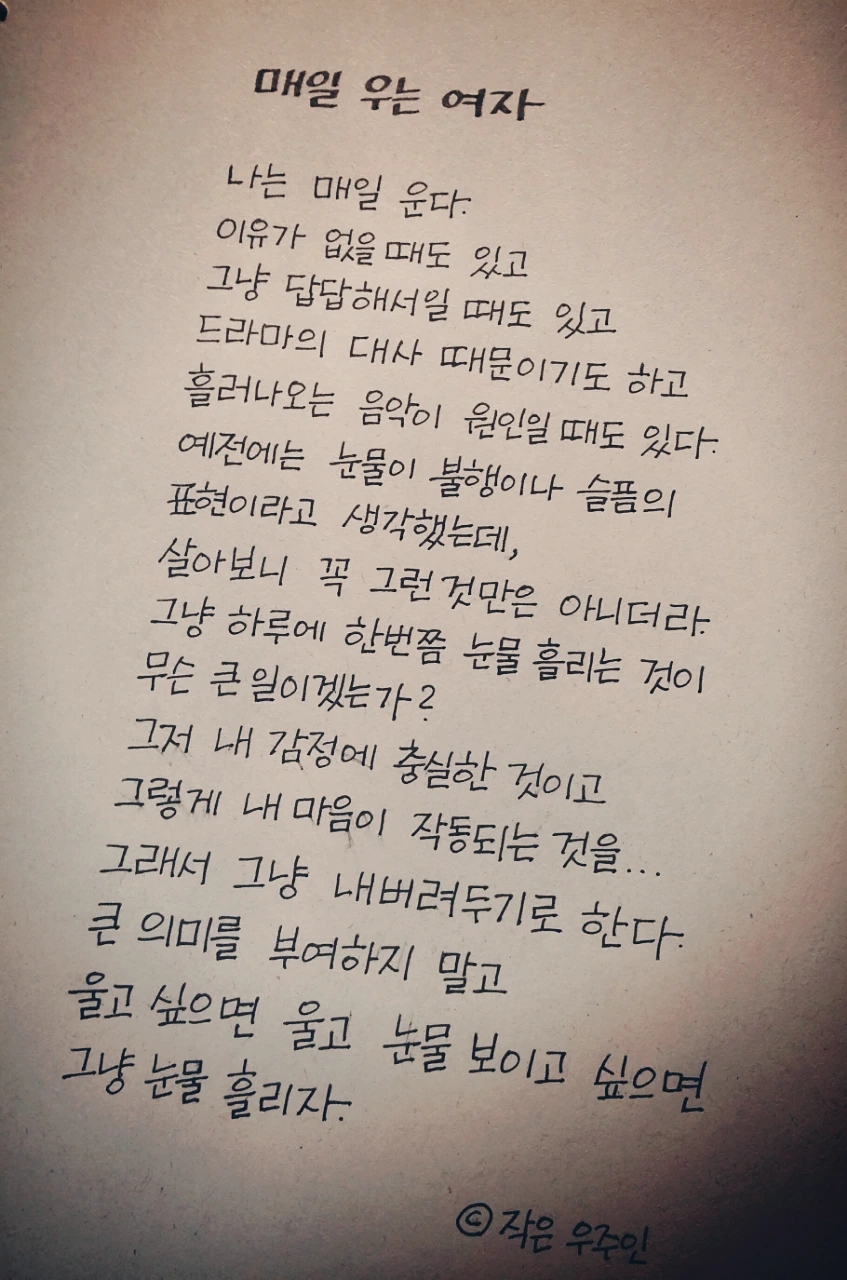 매일 우는 여자
나는 매일 운다.
이유가 없을 때도 있고
그냥 답답해서일 때도 있고
드라마의 대사 때문이기도 하고
흘러나오는 음악이 원인일 때도 있다.
예전에는 눈물이 불행이나 슬픔의
표현이라고 생각했는데,
살아보니 꼭 그런것만은 아니더라.
그냥 하루에 한번쯤 눈물 흘리는 것이
무슨 큰일이겠는가?
그저 내 감정에 충실한 것이고
그렇게 내 마음이 작동되는 것을...
그래서 그냥 내버려두기로 한다.
큰 의미를 부여하지 말고
울고 싶으면 울고 눈물 보이고 싶으면
그냥 눈물 흘리자.
© 작은 우주인